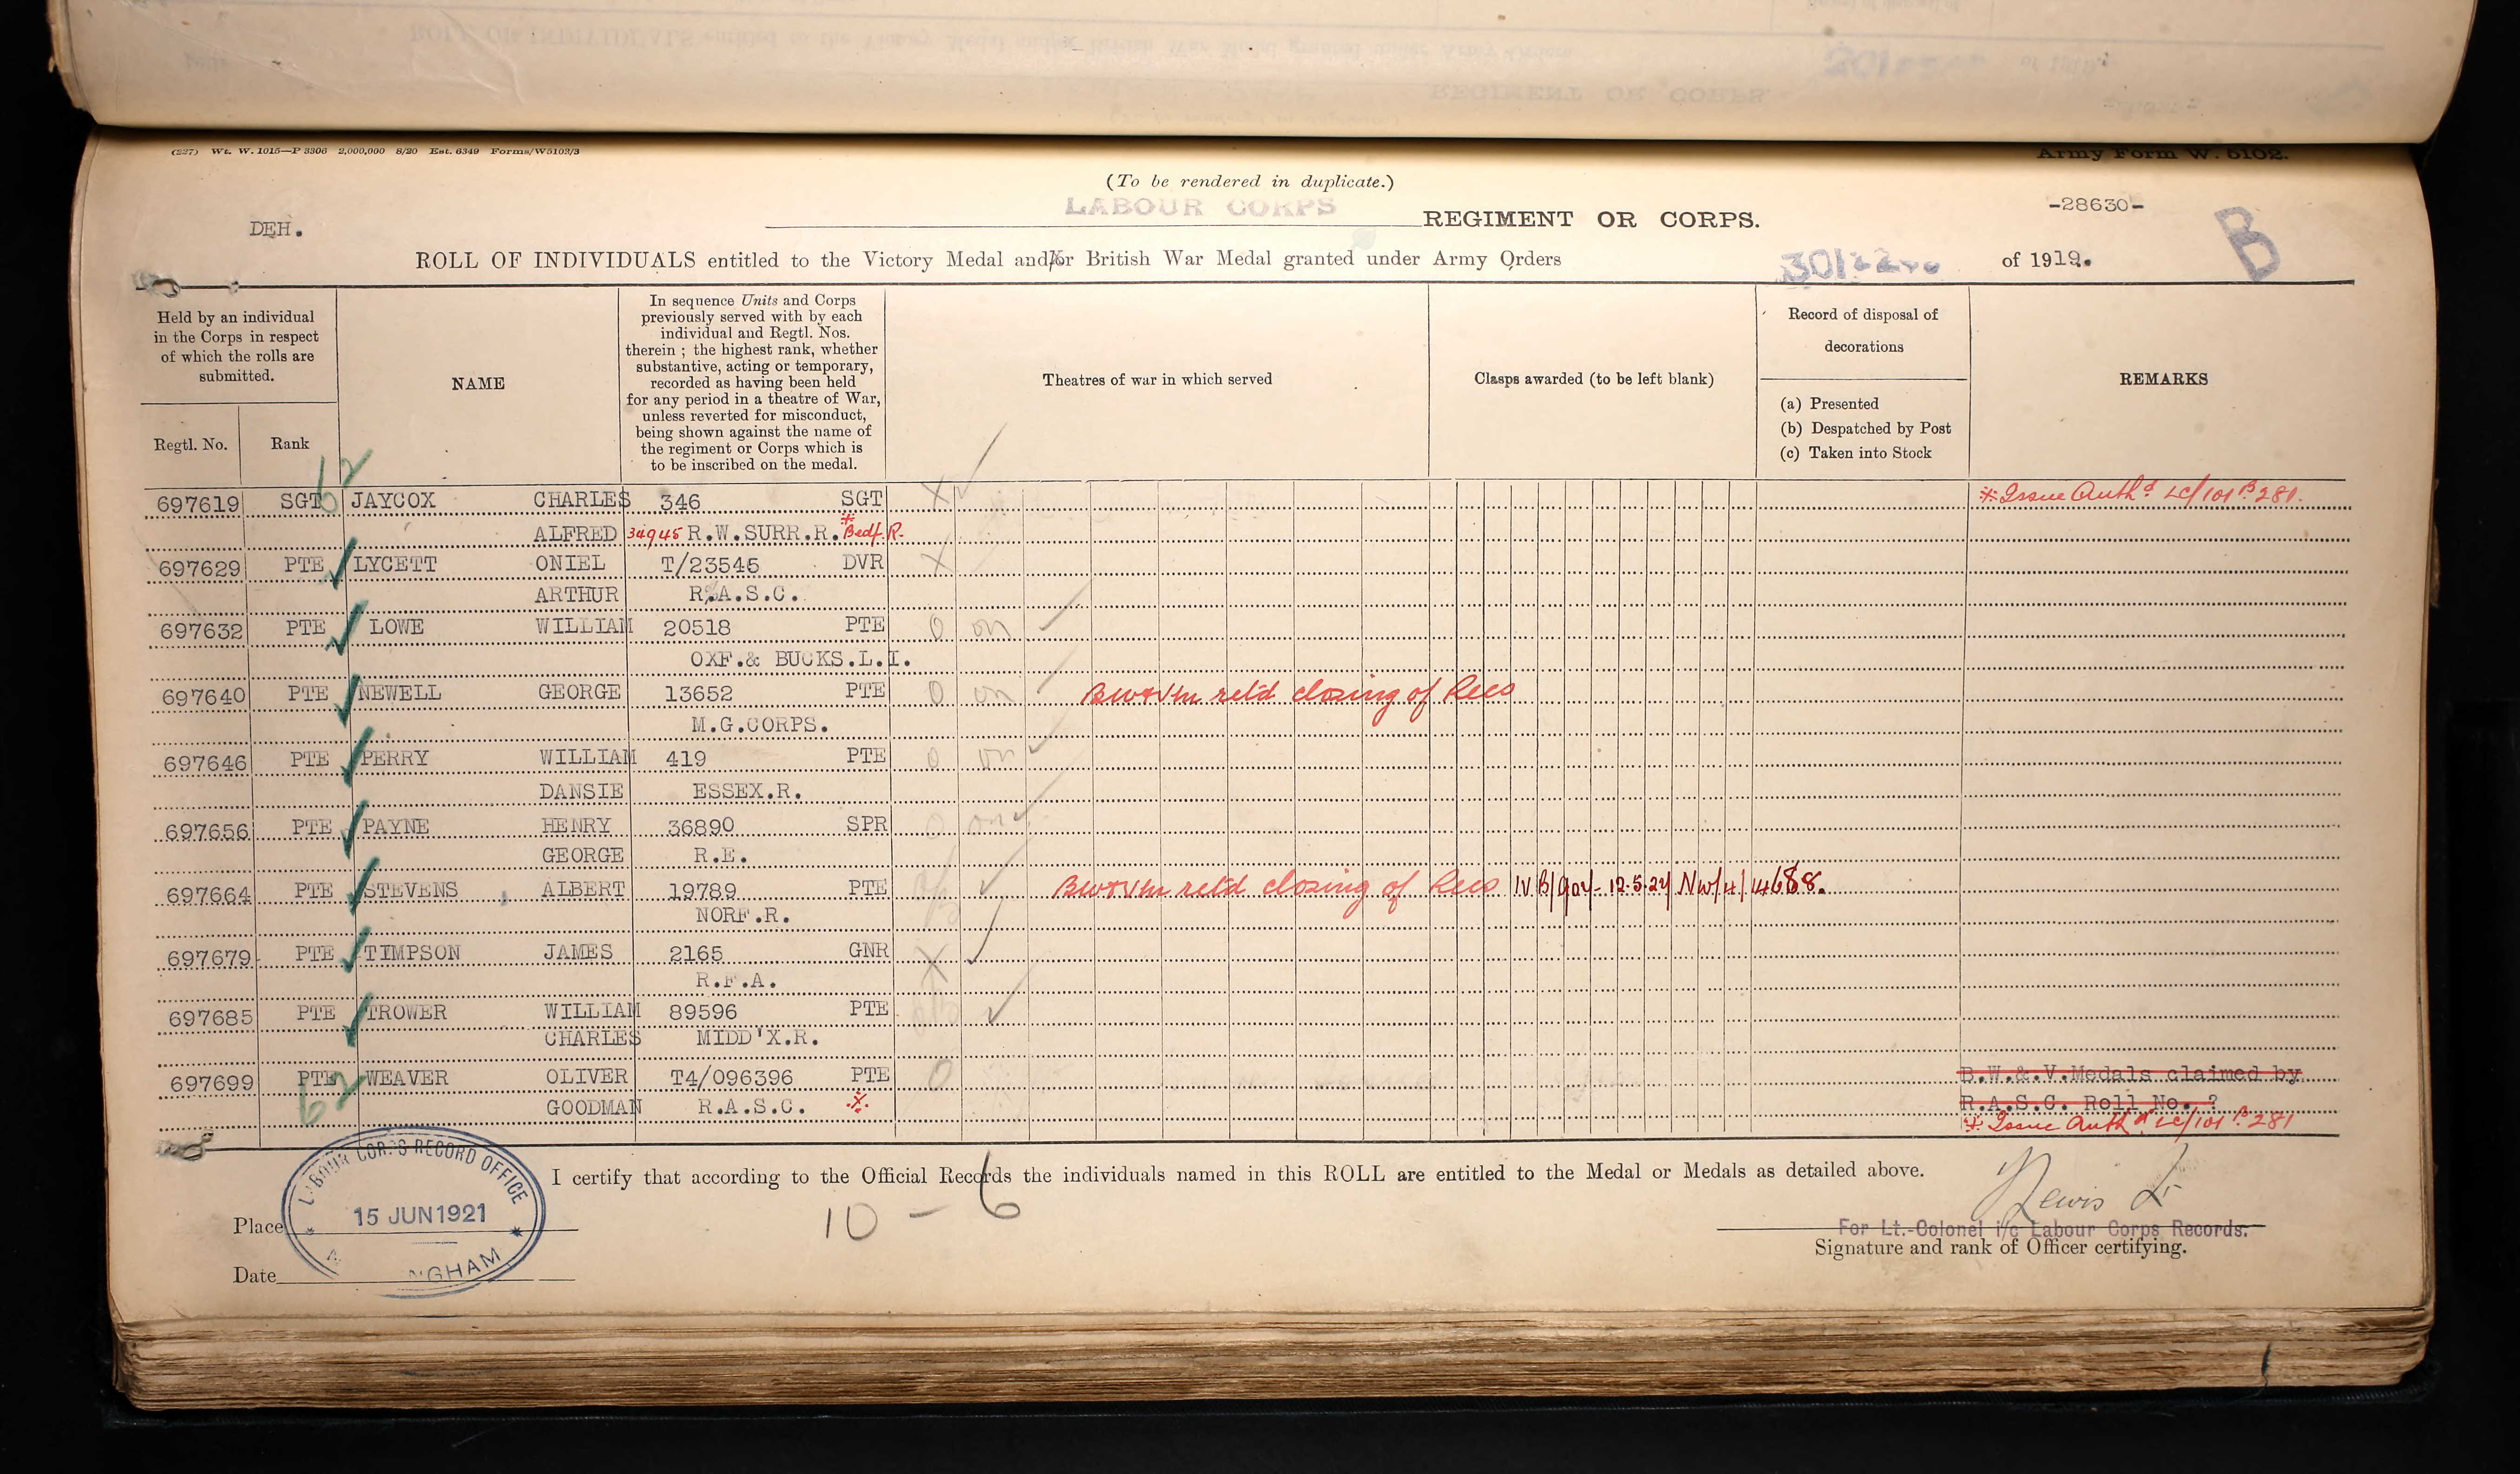 (227) Wt. W. 1015—P 3306 2,000,000 8/20 Est. 6349 Forms/W5102/3
Army Form W. 5102.
(To be rendered in duplicate.)
-28630-
DEH.
LABOUR CORPS REGIMENT OR CORPS.
B
ROLL OF INDIVIDUALS entitled to the Victory Medal and/or British War Medal granted under Army Orders 301 of 1919.
Held by an individual in the Corps in respect of which the rolls are submitted.
Regtl. No.
Rank
NAME
In sequence Units and Corps previously served with by each individual and Regtl. Nos. therein ; the highest rank, whether substantive, acting or temporary, recorded as having been held for any period in a theatre of War, unless reverted for misconduct, being shown against the name of the regiment or Corps which is to be inscribed on the medal.
Theatres of war in which served
Clasps awarded (to be left blank)
Record of disposal of decorations
(a) Presented
(b) Despatched by Post
(c) Taken into Stock
REMARKS
62
697619 SGT JAYCOX CHARLES 346 SGT X * Issue Auth^d LC/101^B 281.
ALFRED 34945 R.W.SURR.R. * Bedf. R.
697629 PTE LYCETT ONIEL T/23546 DVR X
ARTHUR R.A.S.C.
697632 PTE LOWE WILLIAM 20518 PTE O on
OXF.& BUCKS.L.I.
697640 PTE NEWELL GEORGE 13652 PTE O on BW&Vm retd closing of Recs
M.G.CORPS.
697646 PTE PERRY WILLIAM 419 PTE O on
DANSIE ESSEX.R.
697656 PTE PAYNE HENRY 36890 SPR O on
GEORGE R.E.
697664 PTE STEVENS ALBERT 19789 PTE BW&Vm retd closing of Recs 12.5.24 NW/4/14688.
NORF.R.
697679 PTE TIMPSON JAMES 2165 GNR X
R.F.A.
697685 PTE TROWER WILLIAM 89596 PTE
CHARLES MIDD'X.R.
697699 PTE WEAVER OLIVER T4/096396 PTE O B.W.&.V.Medals claimed by
62 GOODMAN R.A.S.C. * R.A.S.C. Roll No. ?
* Issue Auth^d LC/101^B 281
I certify that according to the Official Records the individuals named in this ROLL are entitled to the Medal or Medals as detailed above.
LABOUR CORPS RECORD OFFICE
15 JUN 1921
NGHAM
10 - 6
Lewis Lt
For Lt.-Colonel i/c Labour Corps Records.
Signature and rank of Officer certifying.
Place
Date